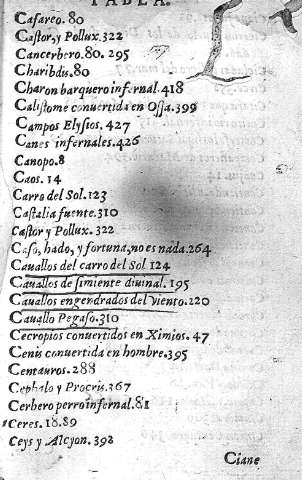 TABLA.
Cafareo. 80
Castor, y Pollux. 322
Cancerbero. 80. 295
Charibdis. 80
Charon barquero infernal. 418
Calistome conuertida en Ossa. 399
Campos Elysios. 427
Canes infernales. 426
Canopo. 8
Caos. 14
Carro del Sol. 123
Castalia fuente. 310
Castor y Pollux. 322
Caso, hado, y fortuna, no es nada. 264
Cauallos del carro del Sol 124
Cauallos de simiente diuinal. 195
Cauallos engendrados del viento. 220
Cauallo Pegaso. 310
Cecropios conuertidos en Ximios. 47
Cenis conuertida en hombre. 395
Centauros. 288
Cephalo y Procris. 367
Cerbero perro infernal. 81
Ceres. 18. 89
Ceys y Alcyon. 392
Ciane